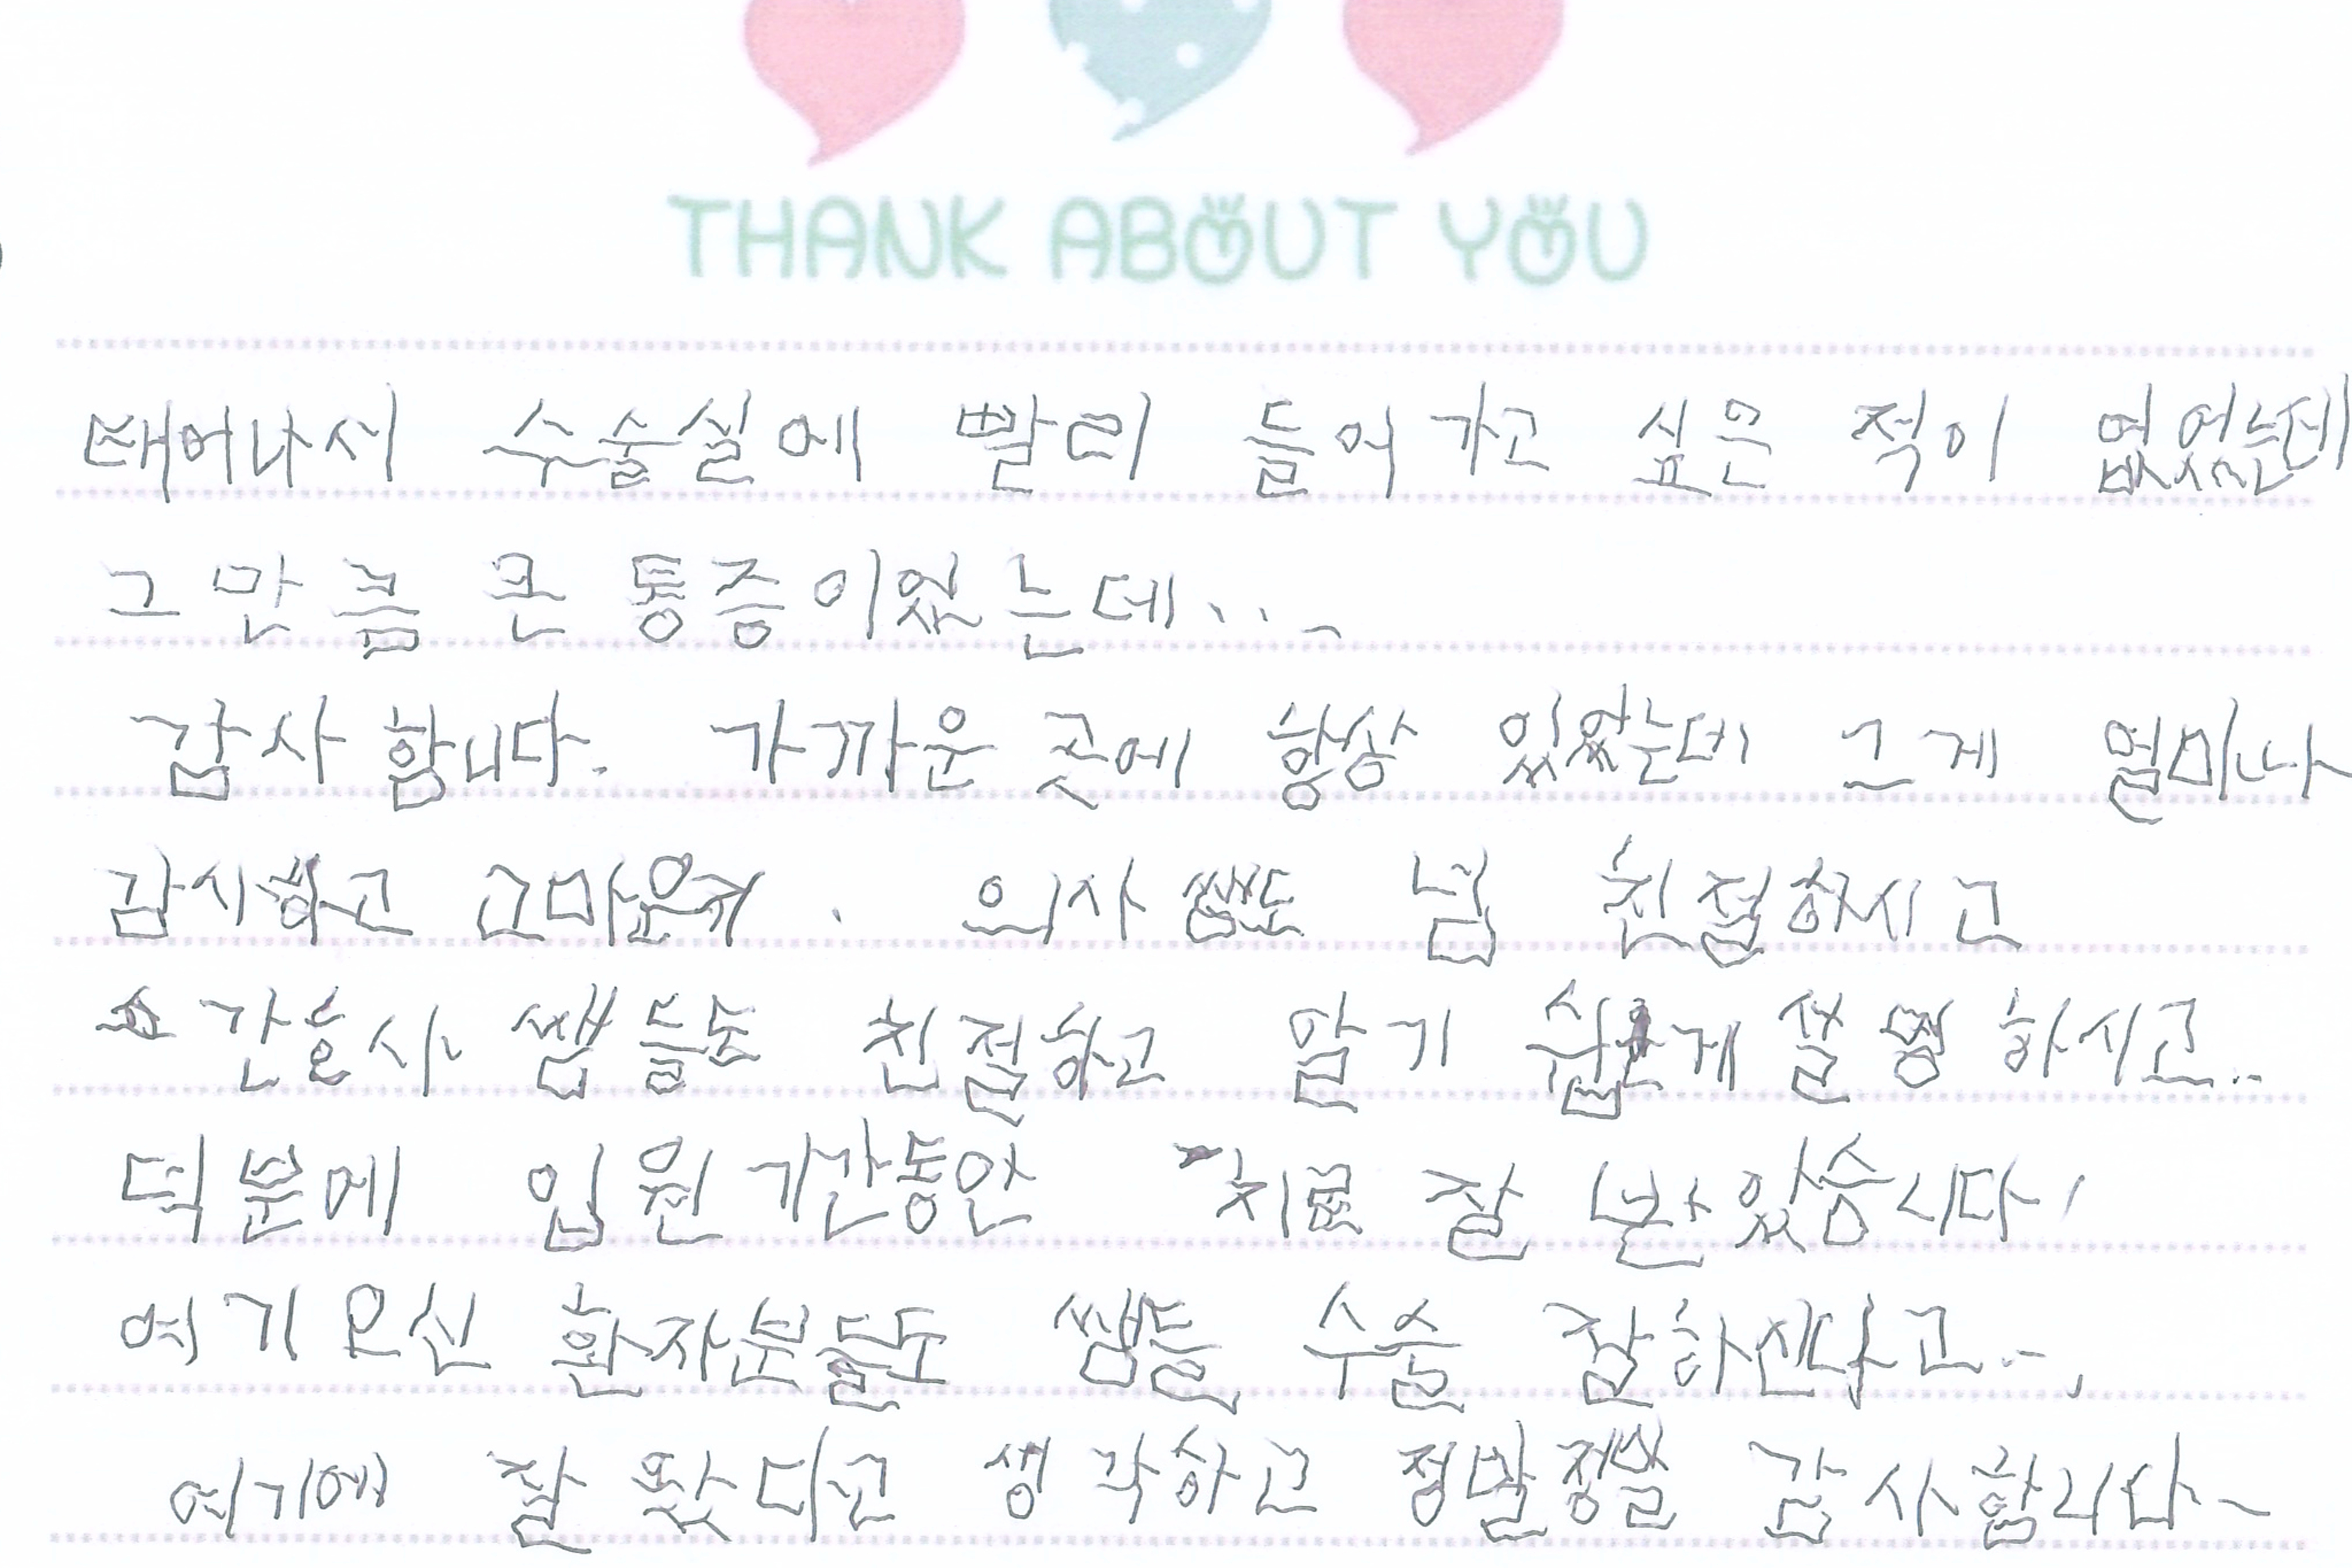 THANK ABOUT YOU
태어나서 수술실에 빨리 들어가고 싶은 적이 없었는데
그만큼 큰 통증이었는데...
감사합니다. 가까운 곳에 항상 있었는데 그게 얼마나
감사하고 고마운지. 의사쌤도 넘 친절하시고
간호사 쌤들도 친절하고 알기 쉽게 설명하시고..
덕분에 입원기간동안 치료 잘 받았습니다!
여기오신 환자분들도 쌤들 수술 잘하신다고...
여기에 잘 왔다고 생각하고 정말정말 감사합니다~